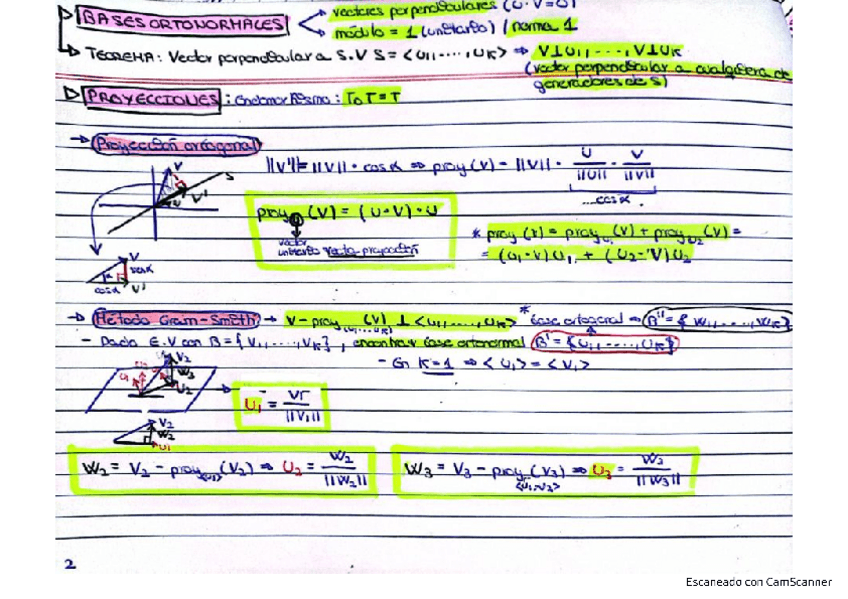 vectores perpendiculares (U·V=0)
BASES ORTONORMALES
módulo = 1 (unitario) / norma 1
TEOREMA: Vector perpendicular a S.V S=<U₁,...,Uₖ> ⇒ V⊥U₁,...,V⊥Uₖ
(vector perpendicular a cualquiera de
generadores de S)
PROYECCIONES: endomorfismo: T∘T=T
→ Proyección ortogonal
||V'||=||V||·cosα ⇒ proy(V) = ||V|| · U/||U|| · V/||V||
cosα
proy_U (V) = (U·V)·U
vector unitario vector proyección
* proy (V) = proy_U₁ (V) + proy_U₂ (V) =
= (U₁·V)U₁ + (U₂·V)U₂
V
cosα V'
→ Método Gram-Smith → V-proy (V) ⊥ <U₁,...,Uₖ> * base ortogonal ⇒ B''={W₁,...,Wₖ}
<U₁,...Uₖ>
- Dada E.V con B={V₁,...,Vₖ}, encontrar base ortonormal B'={U₁,...,Uₖ}
- En K=1 ⇒ <U₁> = <V₁>
U₁ = V₁/||V₁||
W₂ = V₂ - proy_<U₁> (V₂) ⇒ U₂ = W₂/||W₂||
W₃ = V₃ - proy_<U₁,U₂> (V₃) ⇒ U₃ = W₃/||W₃||
2
Escaneado con CamScanner